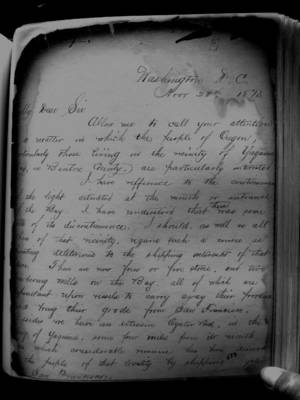 Washington, D. C.
Novr 28th 1873
My Dear Sir
Allow me to call your attention
a matter in which the people of Oregon,
particularly those living in the vicinity of Yaquina
Bay, in Benton County, are particularly interested
I have refference to the continuance
the light situated at the mouth or entrance
of the Bay I have understood that there was some
of its discontinuance. I should, as well as all
of that vicinity, regard such a course as
deleterious to the shipping interests of that
There are now four or five stores, and two
mills on the Bay, all of which are
upon vessels to carry away their produce
and bring their goods from San Francisco.
we have an extensive Oyster Bed, in the
of Yaquina, some four miles from its mouth
which considerable revenue has been derived
the people of that locality by shipping
San Francisco